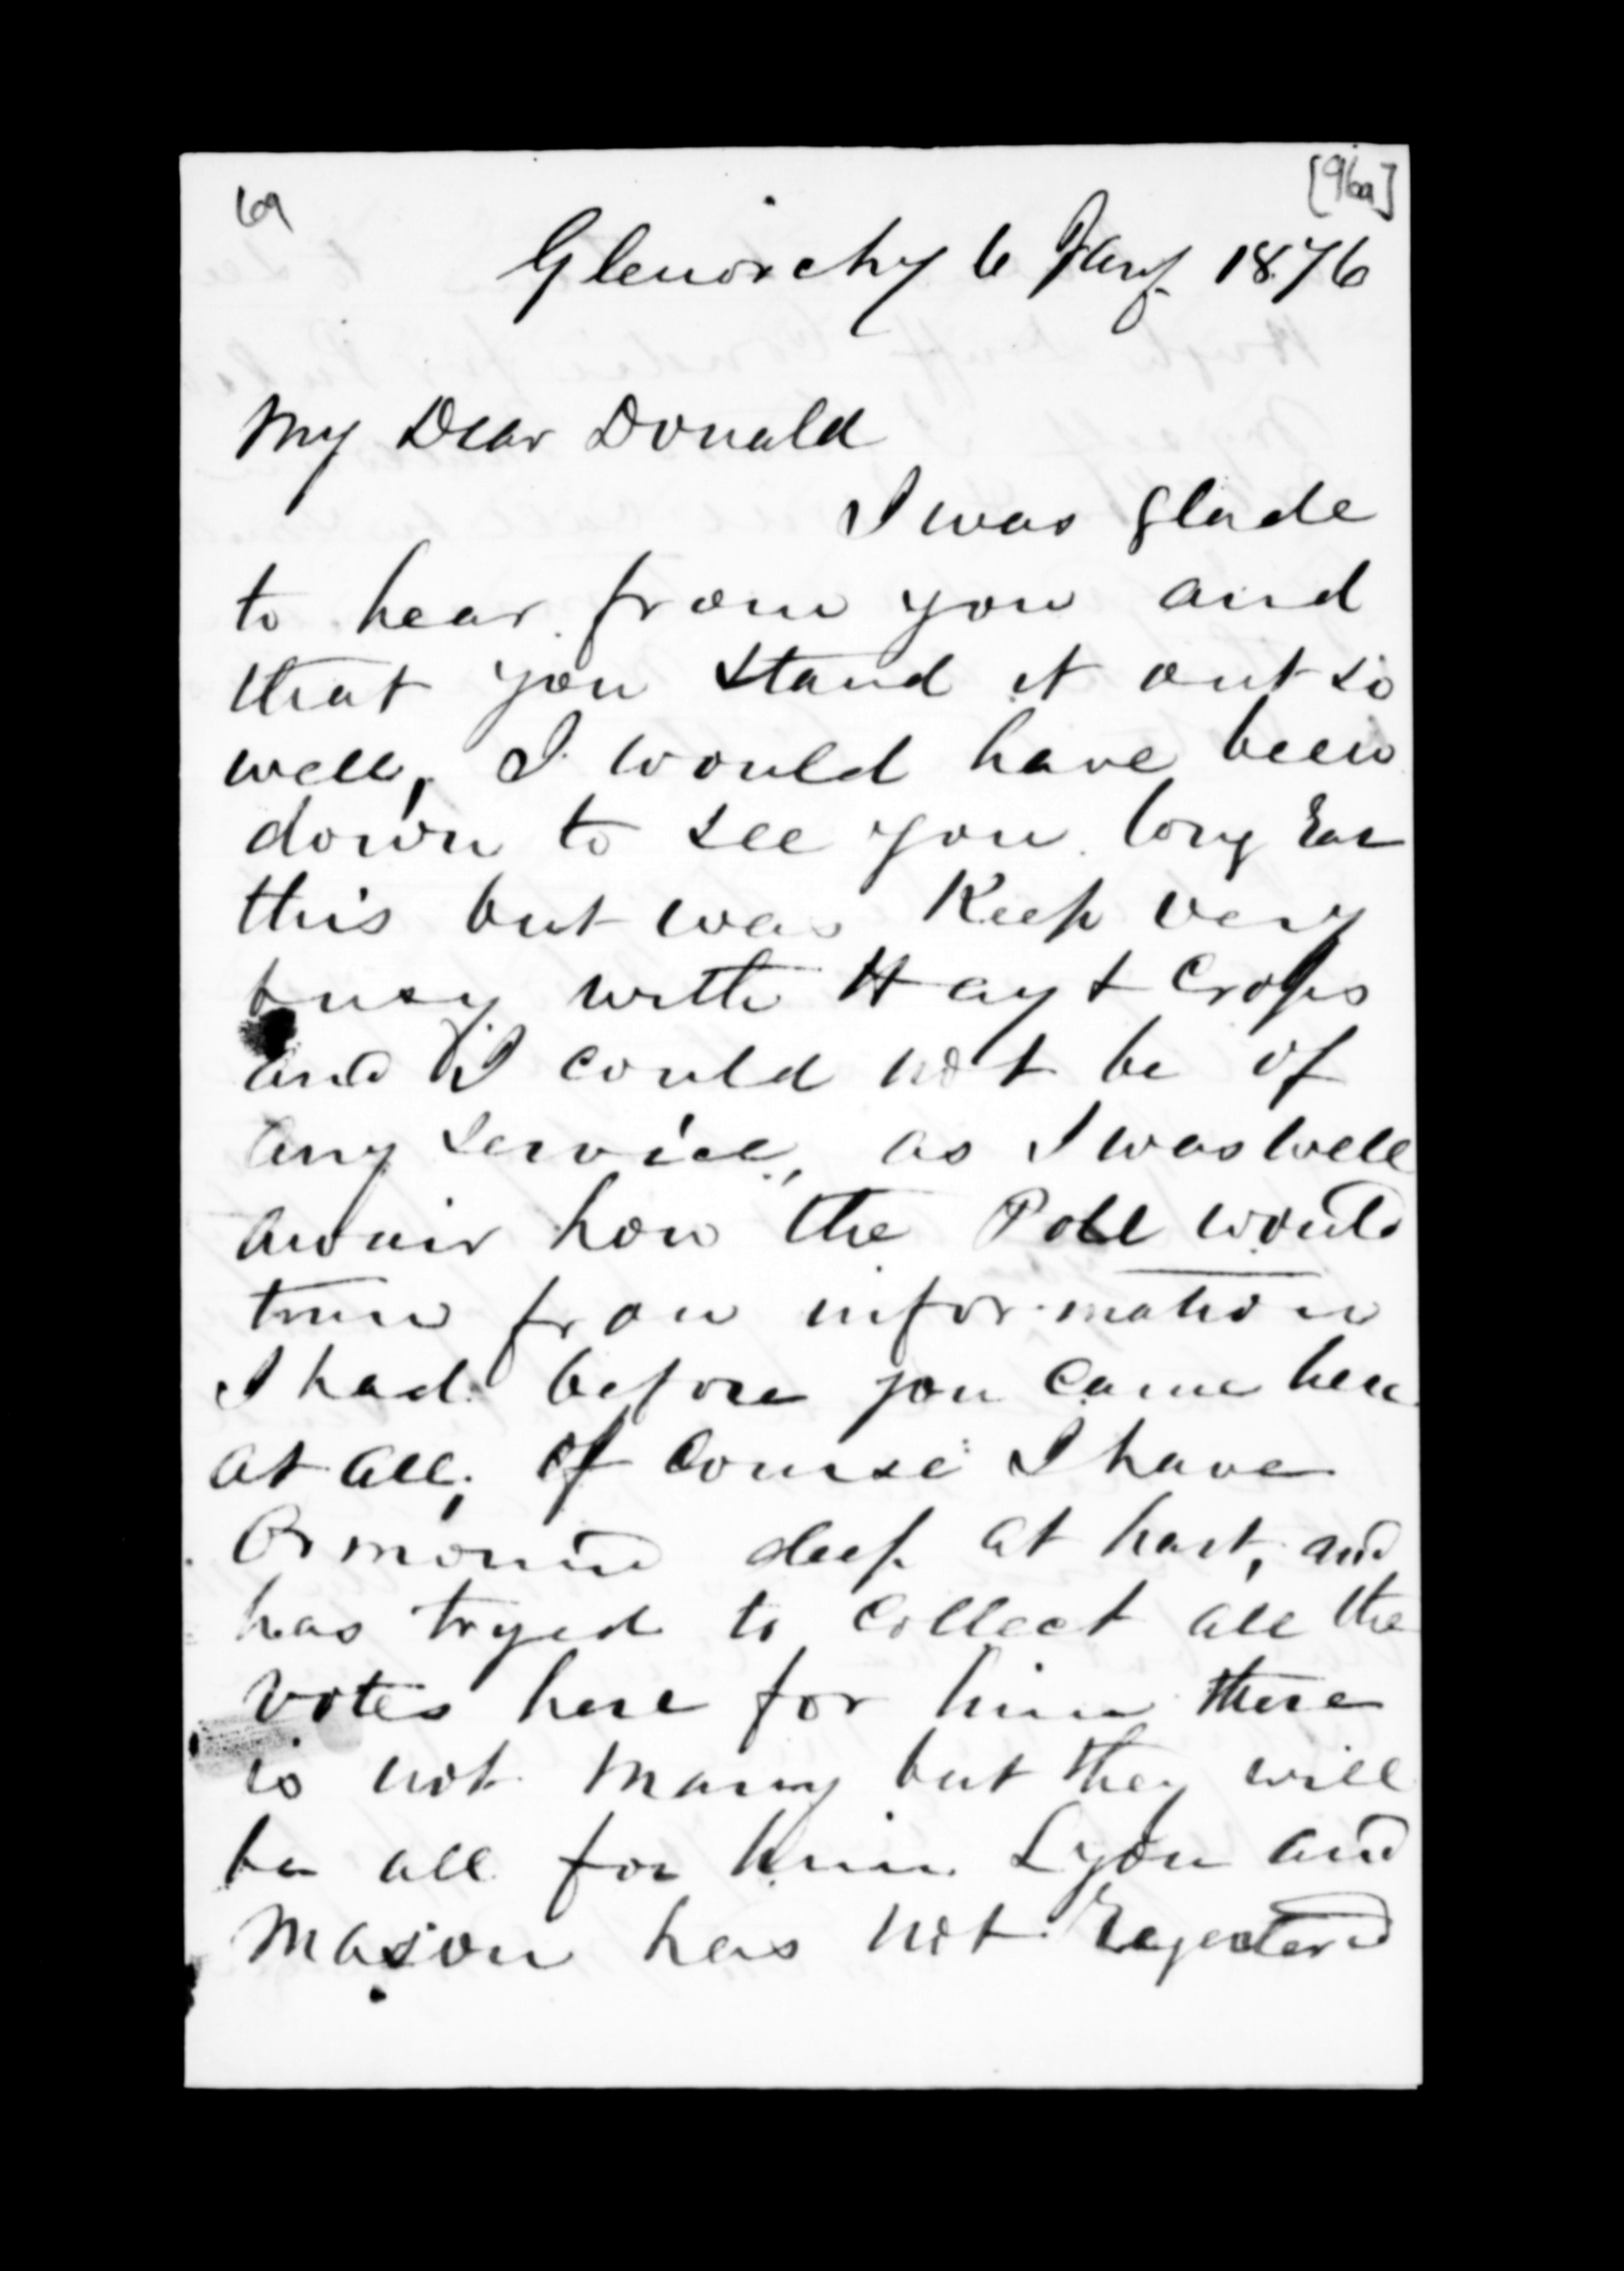 69
[96a]
Glenorchy 6 Jany. 1876
My Dear Donald
I was glade
to hear from you and
that you stand it out so
well, I would have been
down to see you long Ear
this but was Keep very
busy with Hay & Crops
and I could not be of
any service, as I was well
awair how the Poll would
turn from information
I had before you came here
at all, of Course I have
Ormond deep at hart, and
has tryed to Collect all the
votes here for him there
is not many but they will
be all for him. Lyon and
Mason has not